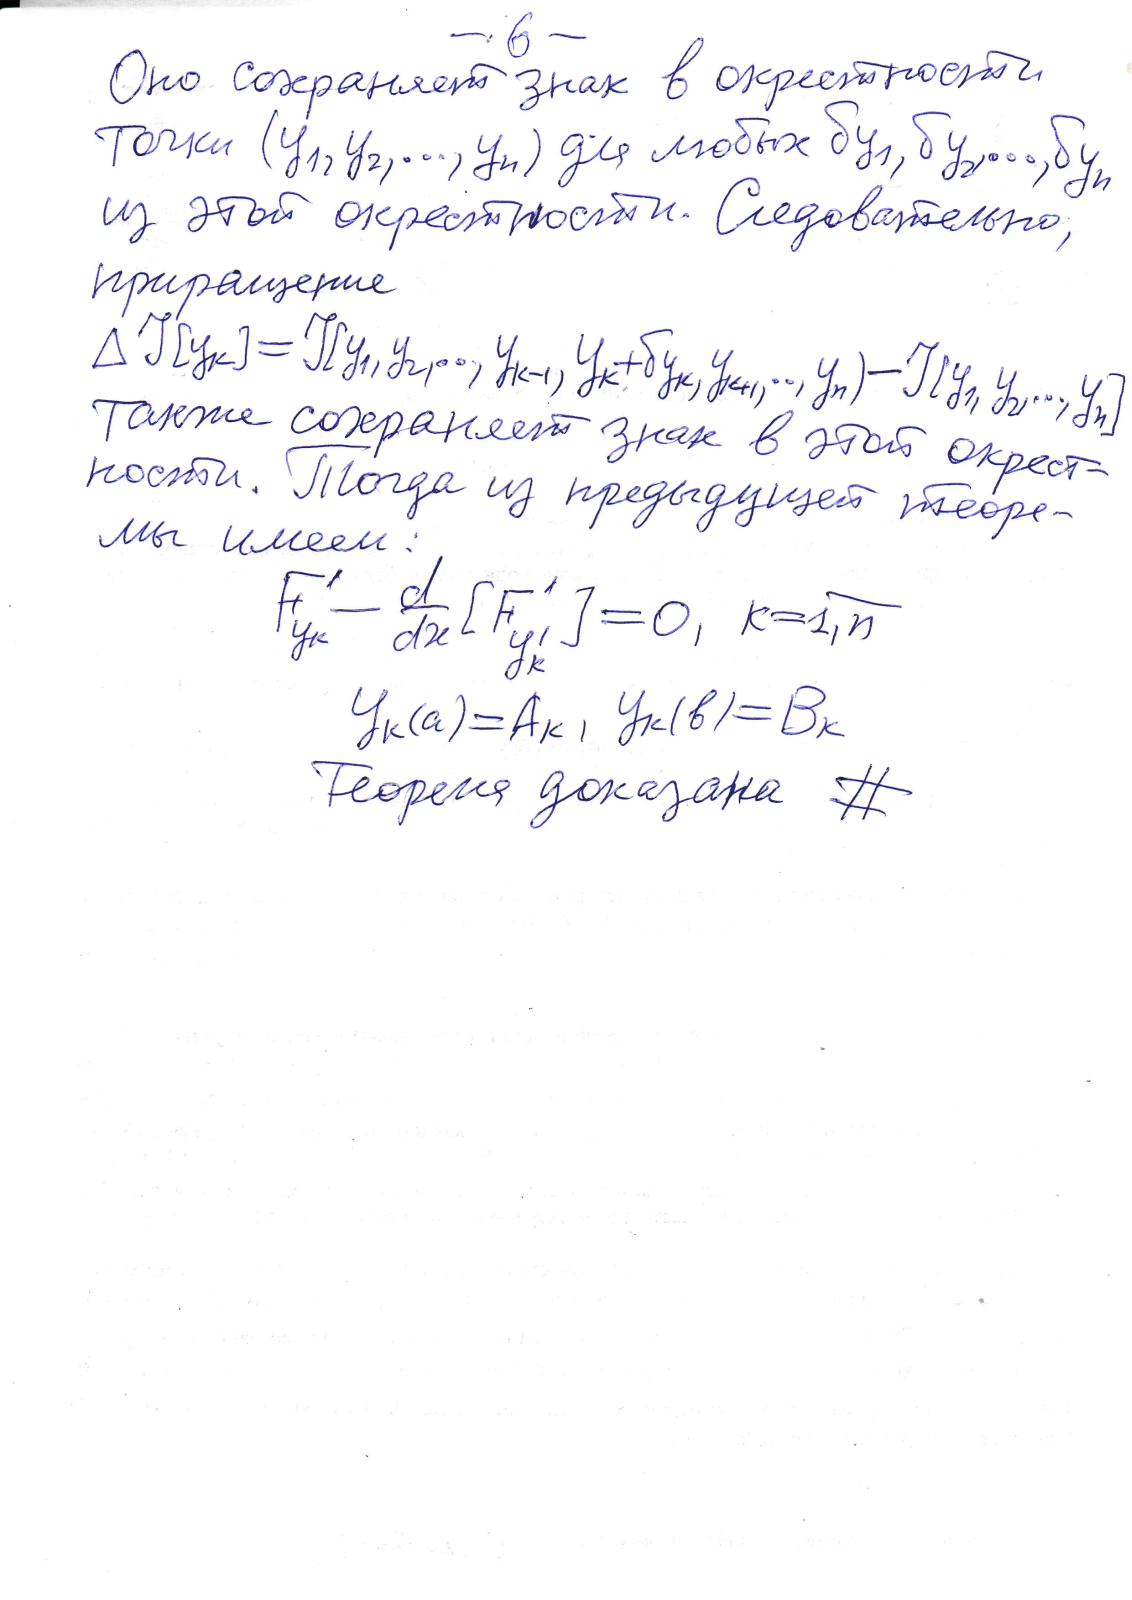 – 6 –
Оно сохраняет знак в окрестности
точки (y₁, y₂, ..., yₙ) для любых δy₁, δy₂, ..., δyₙ
из этой окрестности. Следовательно,
приращение
Δ J[yₖ] = J[y₁, y₂, ..., yₖ₋₁, yₖ+δyₖ, yₖ₊₁, ..., yₙ) – J[y₁, y₂, ..., yₙ]
также сохраняет знак в этой окрест=
ности. Тогда из предыдущей теоре-
мы имеем:
F'_{yₖ} – d/dx [F'_{y'ₖ}] = 0, k = 1,n̅
yₖ(a) = Aₖ, yₖ(b) = Bₖ
Теорема доказана #